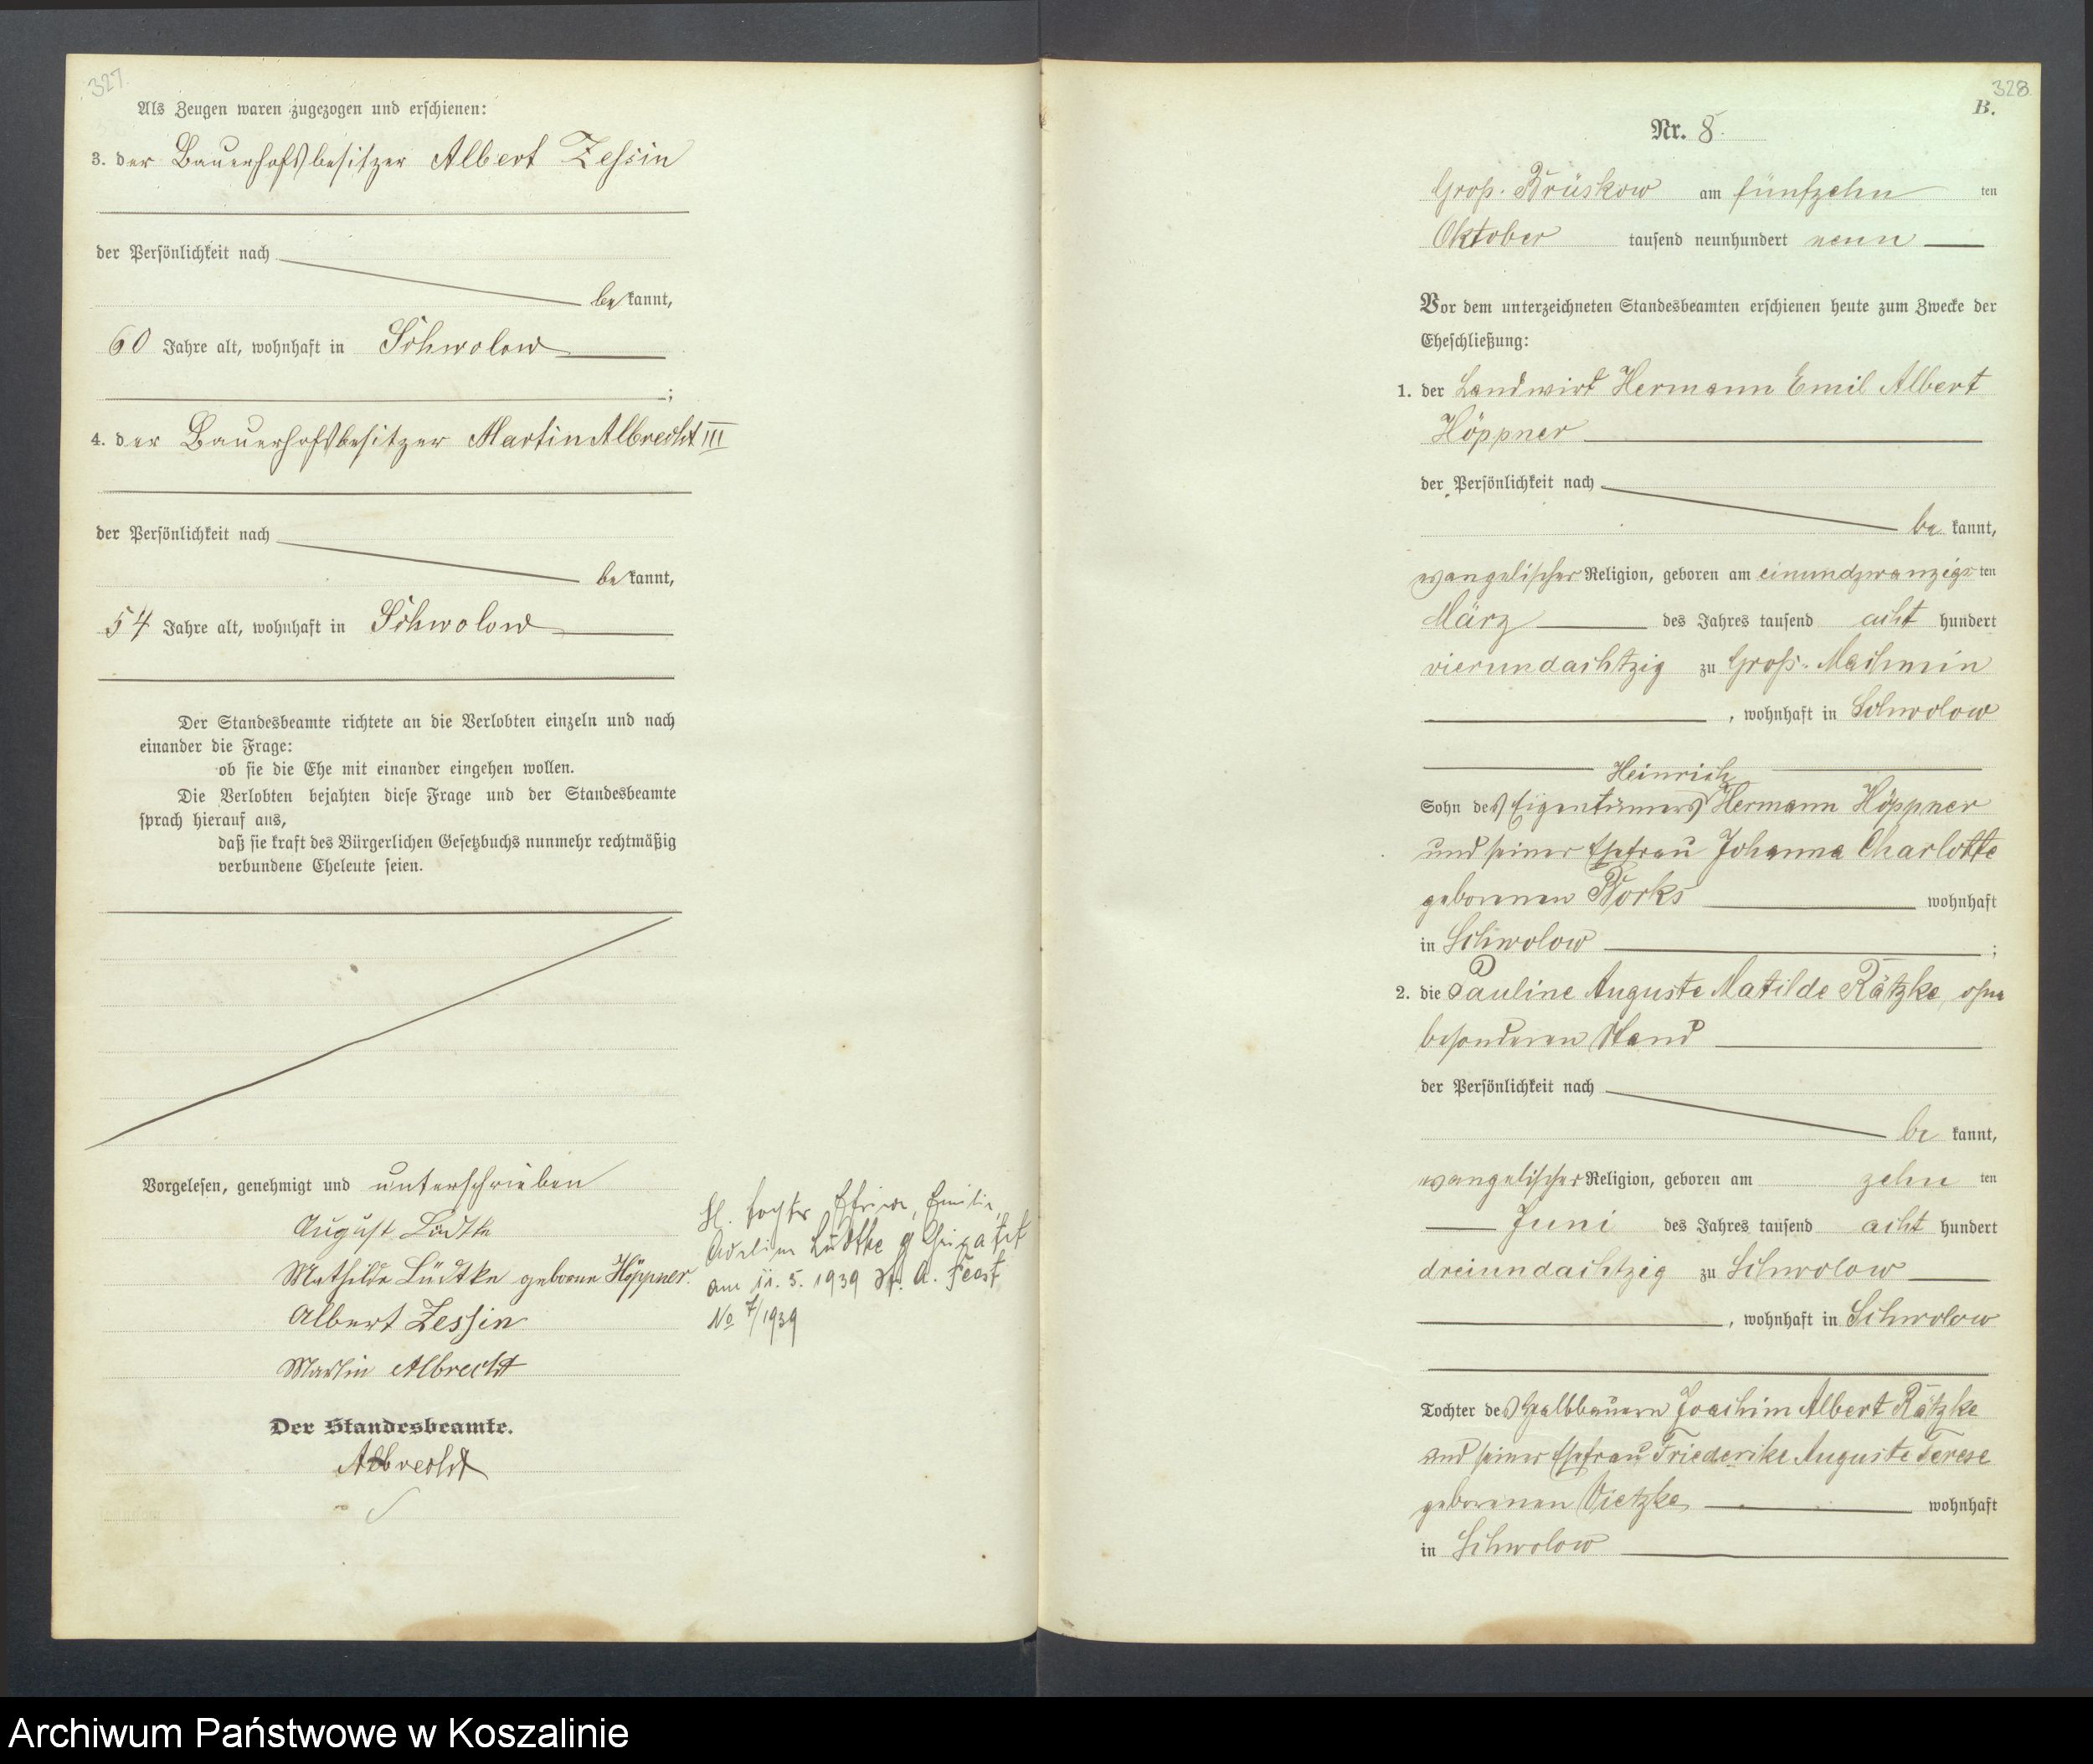 327.
Als Zeugen waren zugezogen und erschienen:
3. der Bauerhofsbesitzer Albert Zessin
der Persönlichkeit nach
bekannt,
60 Jahre alt, wohnhaft in Schwolow
;
4. der Bauerhofsbesitzer Martin Albrecht III
der Persönlichkeit nach
bekannt,
54 Jahre alt, wohnhaft in Schwolow
Der Standesbeamte richtete an die Verlobten einzeln und nach
einander die Frage:
ob sie die Ehe mit einander eingehen wollen.
Die Verlobten bejahten diese Frage und der Standesbeamte
sprach hierauf aus,
daß sie kraft des Bürgerlichen Gesetzbuchs nunmehr rechtmäßig
verbundene Eheleute seien.
Vorgelesen, genehmigt und unterschrieben
August Lüdtke
Mathilde Lüdtke geborene Höppner.
Albert Zessin
Martin Albrecht
Der Standesbeamte.
Albrecht
Tochter Emilie
Lüdtke
am 11. 5. 1939 St. A.
No 7/1939
328.
B.
Nr. 8.
Groß-Brüskow am fünfzehn ten
Oktober tausend neunhundert neun
Vor dem unterzeichneten Standesbeamten erschienen heute zum Zwecke der
Eheschließung:
1. der Landwirt Hermann Emil Albert
Höppner
der Persönlichkeit nach
be kannt,
evangelischer Religion, geboren am einundzwanzigs ten
März des Jahres tausend acht hundert
vierundachtzig zu Groß-Machmin
, wohnhaft in Schwolow
Heinrich
Sohn des Eigentümers Hermann Höppner
und seiner Ehefrau Johanna Charlotte
geborenen Borks wohnhaft
in Schwolow ;
2. die Pauline Auguste Matilde Rätzke, ohne
besonderen Stand
der Persönlichkeit nach
be kannt,
evangelischer Religion, geboren am zehn ten
Juni des Jahres tausend acht hundert
dreiundachtzig zu Schwolow
, wohnhaft in Schwolow
Tochter des Halbbauern Joachim Albert Rätzke
und seiner Ehefrau Friederike Auguste Terese
geborenen Vietzke wohnhaft
in Schwolow
Archiwum Państwowe w Koszalinie